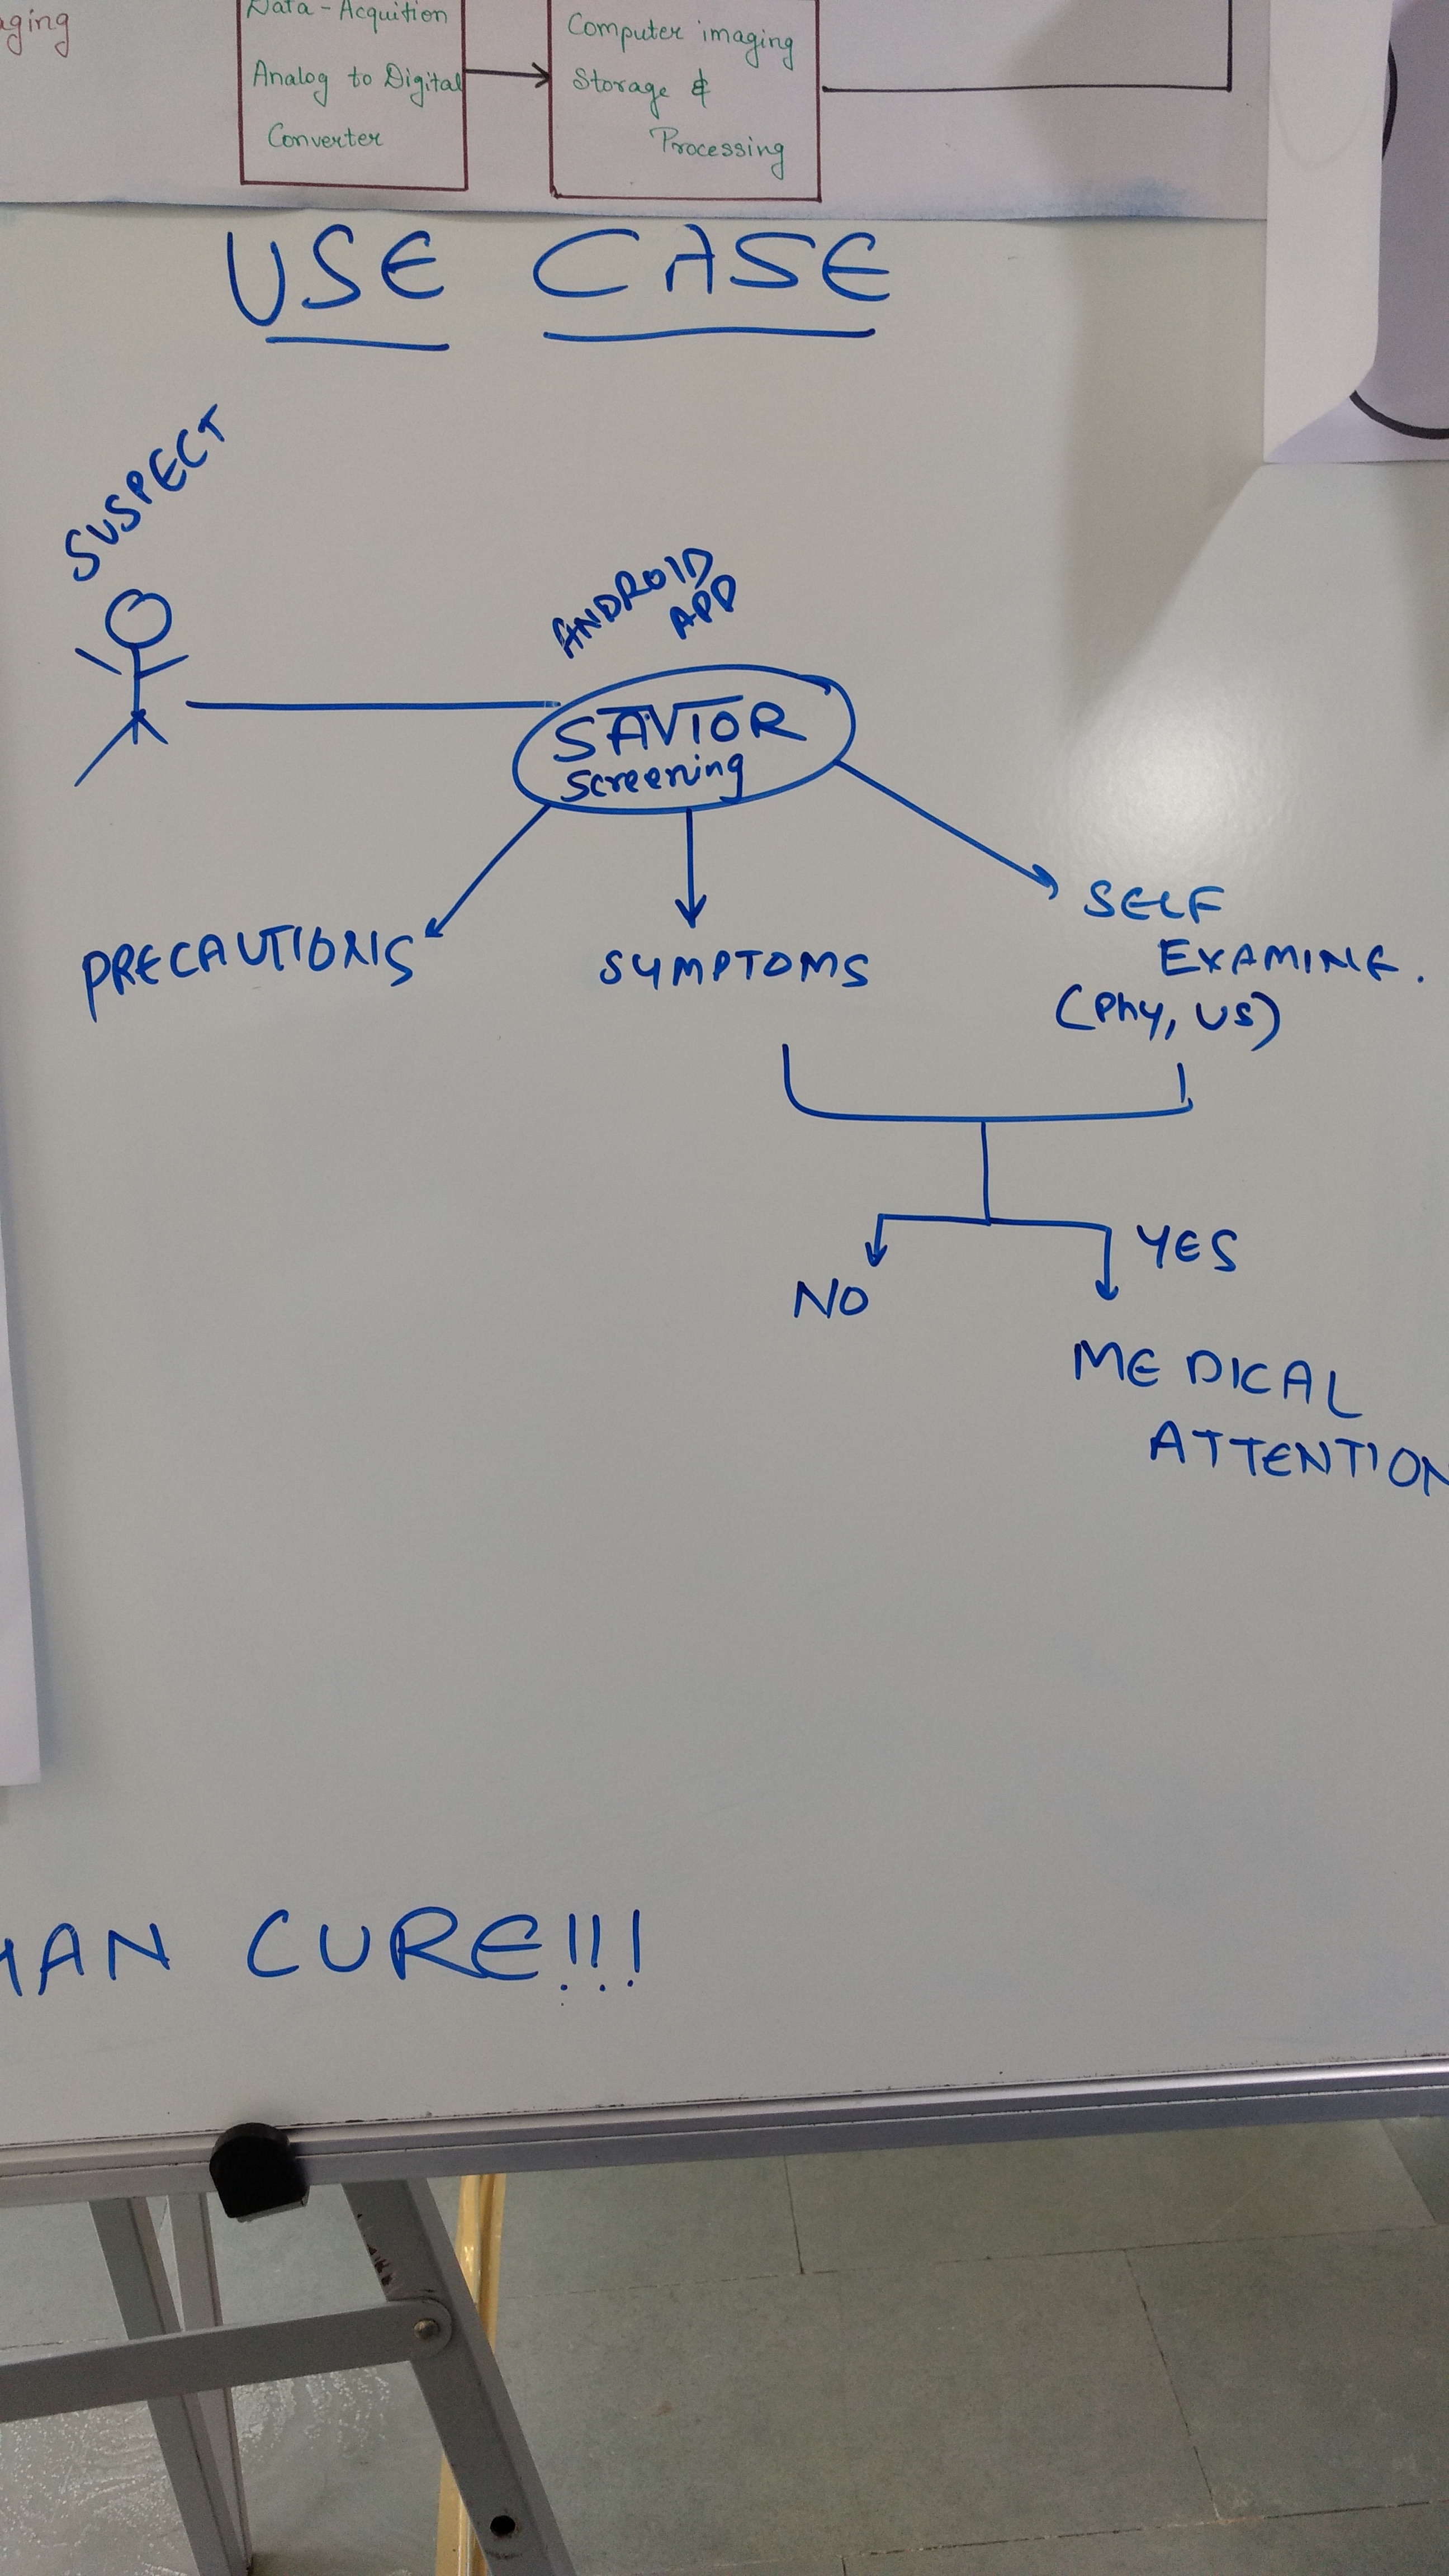 aging
Data-Acquition
Analog to Digital
Converter
Computer imaging
Storage &
Processing
USE CASE
SUSPECT
ANDROID
APP
SAVIOR
Screening
PRECAUTIONS
SYMPTOMS
SELF
EXAMINE.
(Phy, US)
NO
YES
MEDICAL
ATTENTION
HAN CURE!!!